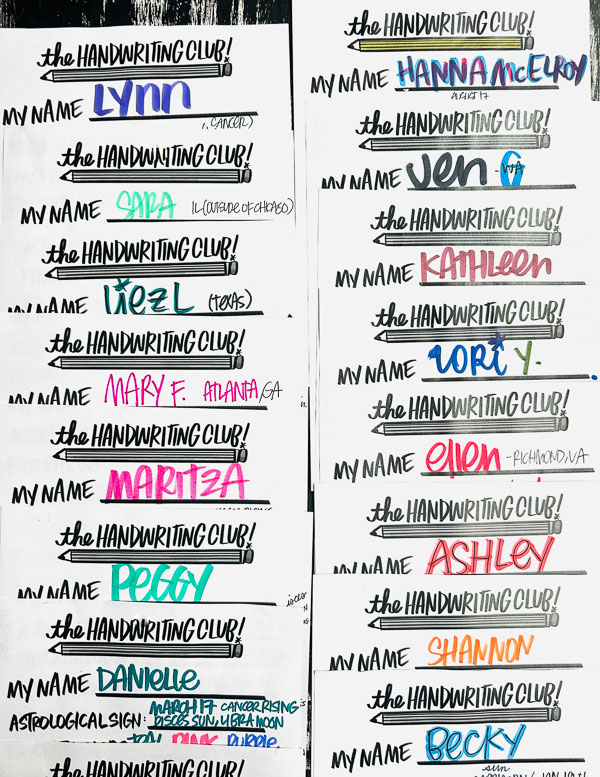 the HANDWRITING CLUB!
MY NAME LYNN
CANCER)
the HANDWRITING CLUB!
MY NAME SARA IL (OUTSIDE OF CHICAGO)
the HANDWRITING CLUB!
MY NAME liezL (TEXAS)
the HANDWRITING CLUB!
MY NAME MARY F. ATLANTA, GA
the HANDWRITING CLUB!
MY NAME MARITZA
the HANDWRITING CLUB!
MY NAME PEGGY
the HANDWRITING CLUB!
MY NAME DANIELLE
ASTROLOGICAL SIGN: MARCH 17 CANCER RISING
PISCES SUN, LIBRA MOON
PINK PURPLE
the HANDWRITING CLUB!
the HANDWRITING CLUB!
MY NAME HANNA McELROY
AUGUST 17
the HANDWRITING CLUB!
MY NAME Jen G - WA
the HANDWRITING CLUB!
MY NAME KATHLEEN
the HANDWRITING CLUB!
MY NAME LORI Y.
the HANDWRITING CLUB!
MY NAME ellen - RICHMOND, VA
the HANDWRITING CLUB!
MY NAME ASHLEY
the HANDWRITING CLUB!
MY NAME SHANNON
the HANDWRITING CLUB!
MY NAME BECKY
sun